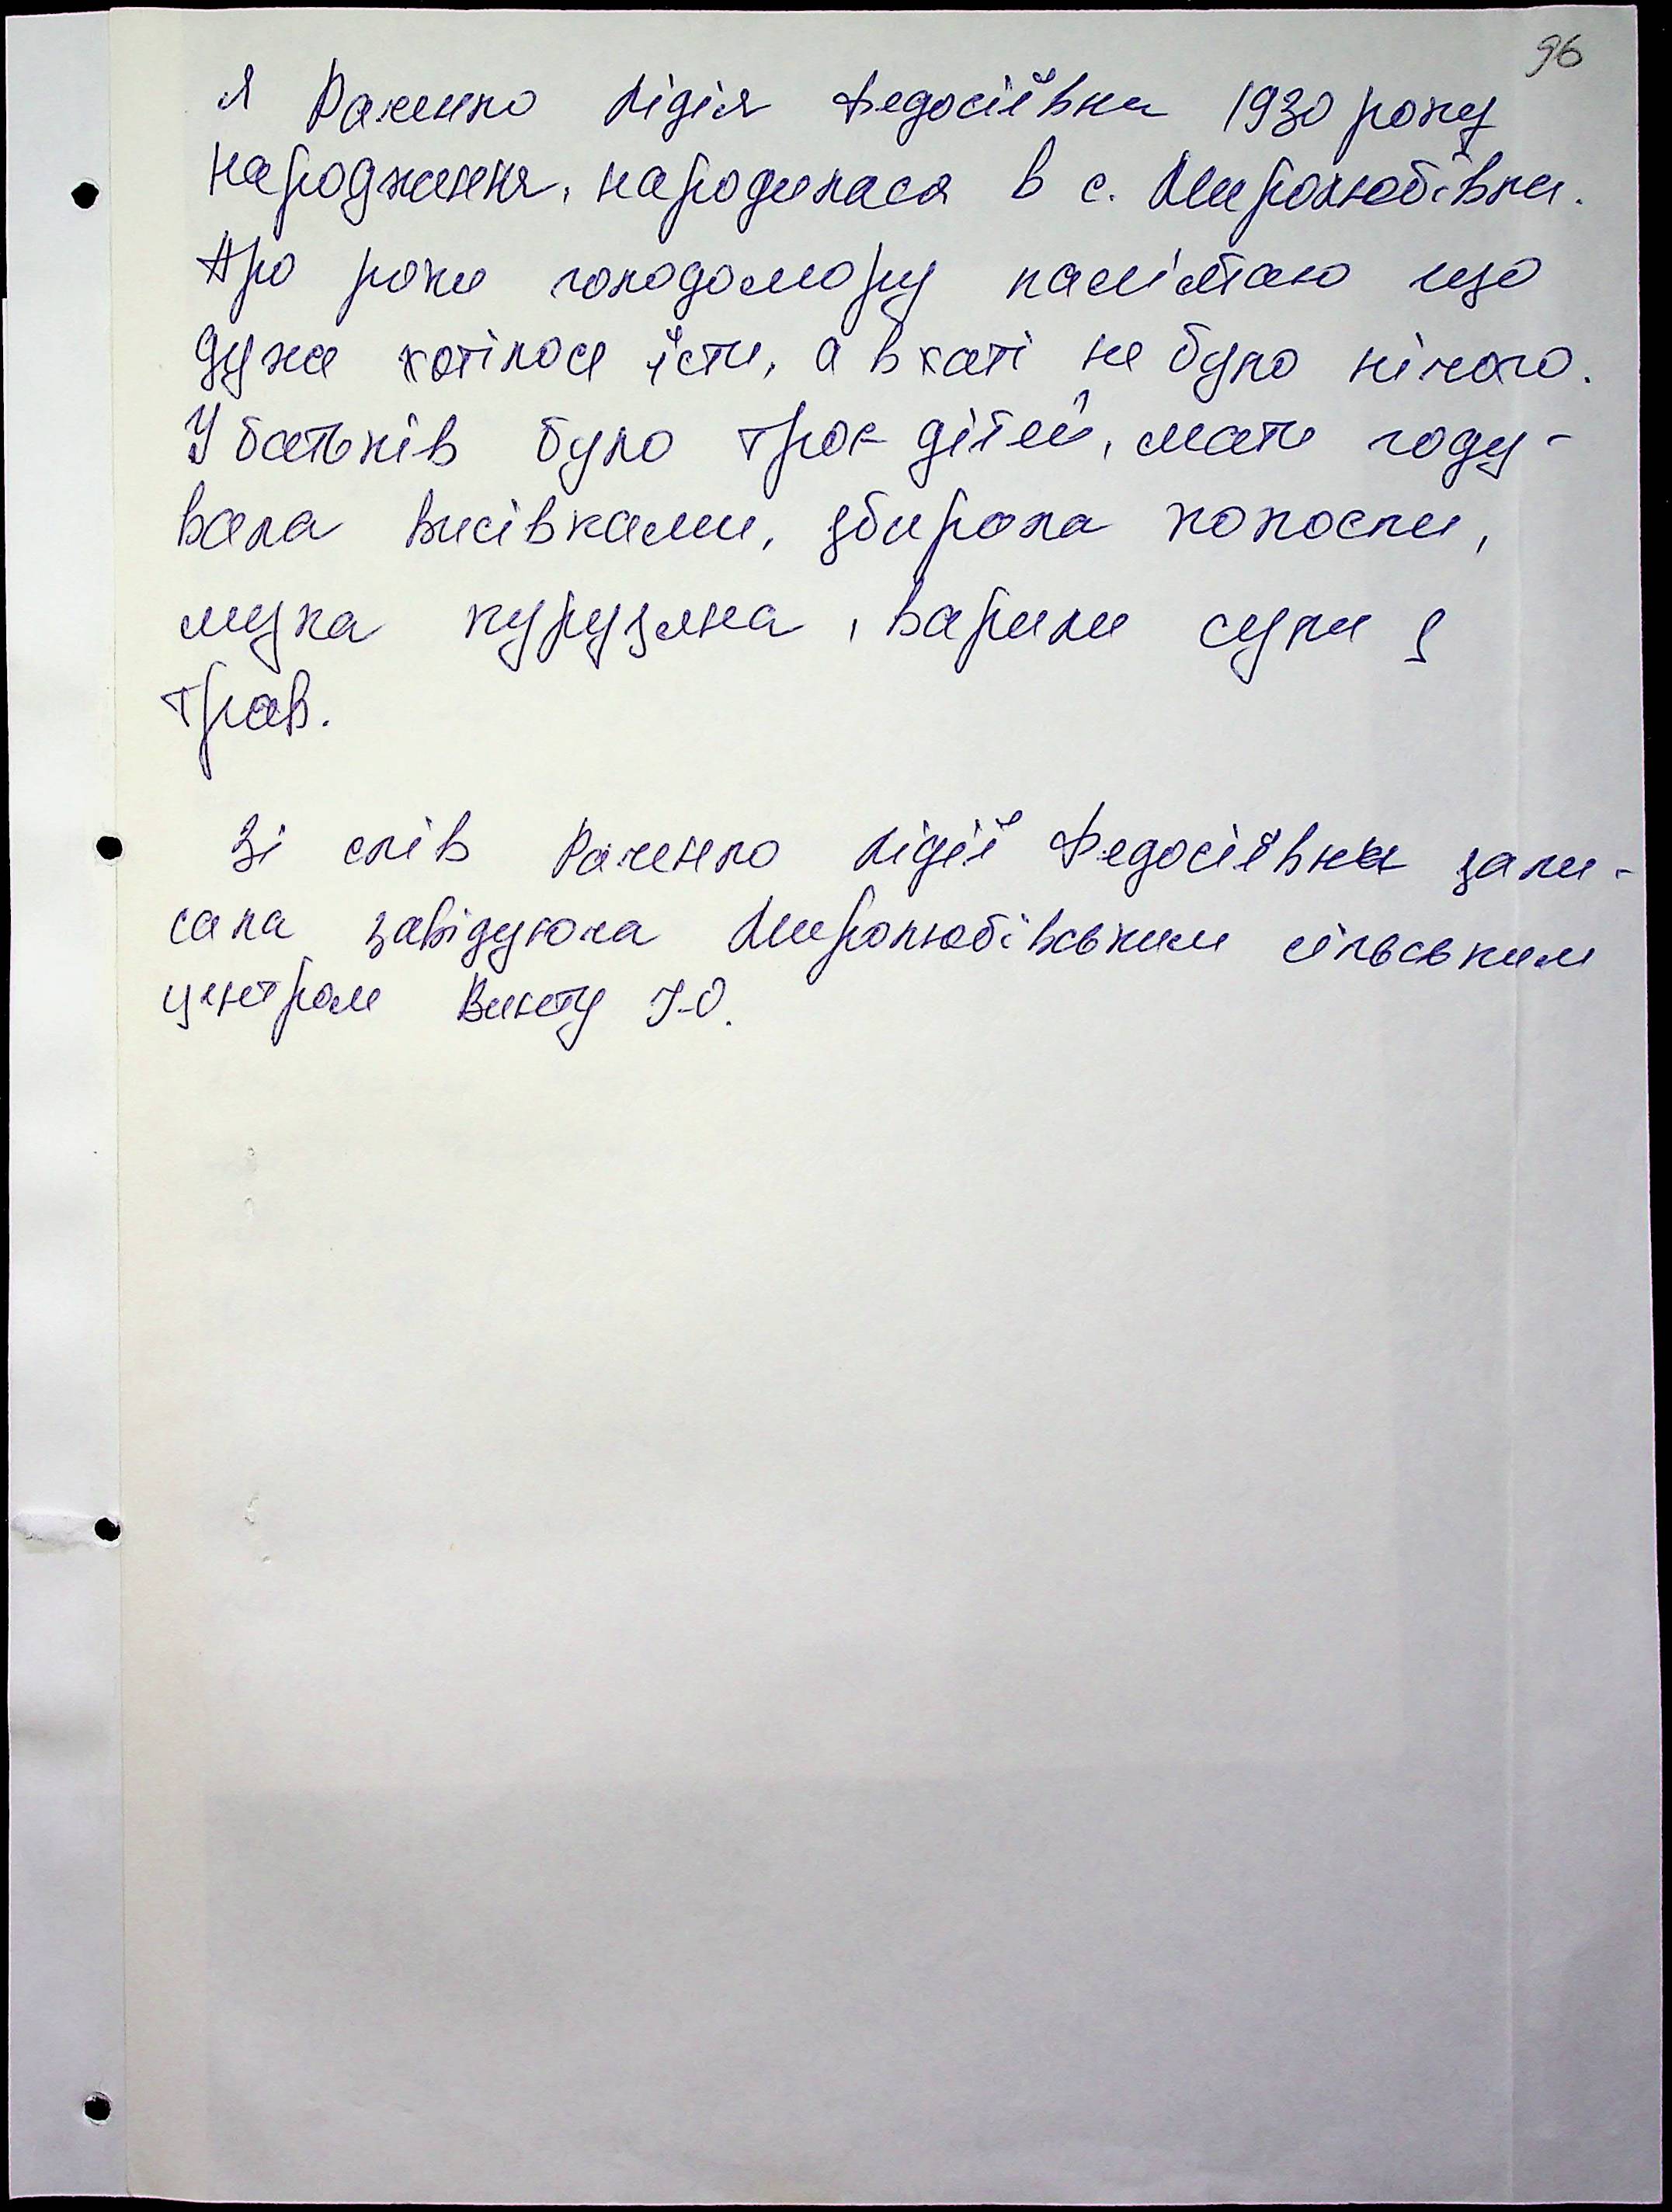 96
Я Раченко Лідія Федосіївна 1930 року
народження, народилася в с. Миролюбівка.
Про роки голодомору памімтаю що
дуже хотілося їсти, а в хаті не було нічого.
У батьків було троє дітей, мати году-
вала висівками, збирала колоски,
мука курузяна, варили супи з
трав.
Зі слів Раченко Лідії Федосіївни запи-
сала завідуюча Миролюбівським сільським
центром Винту